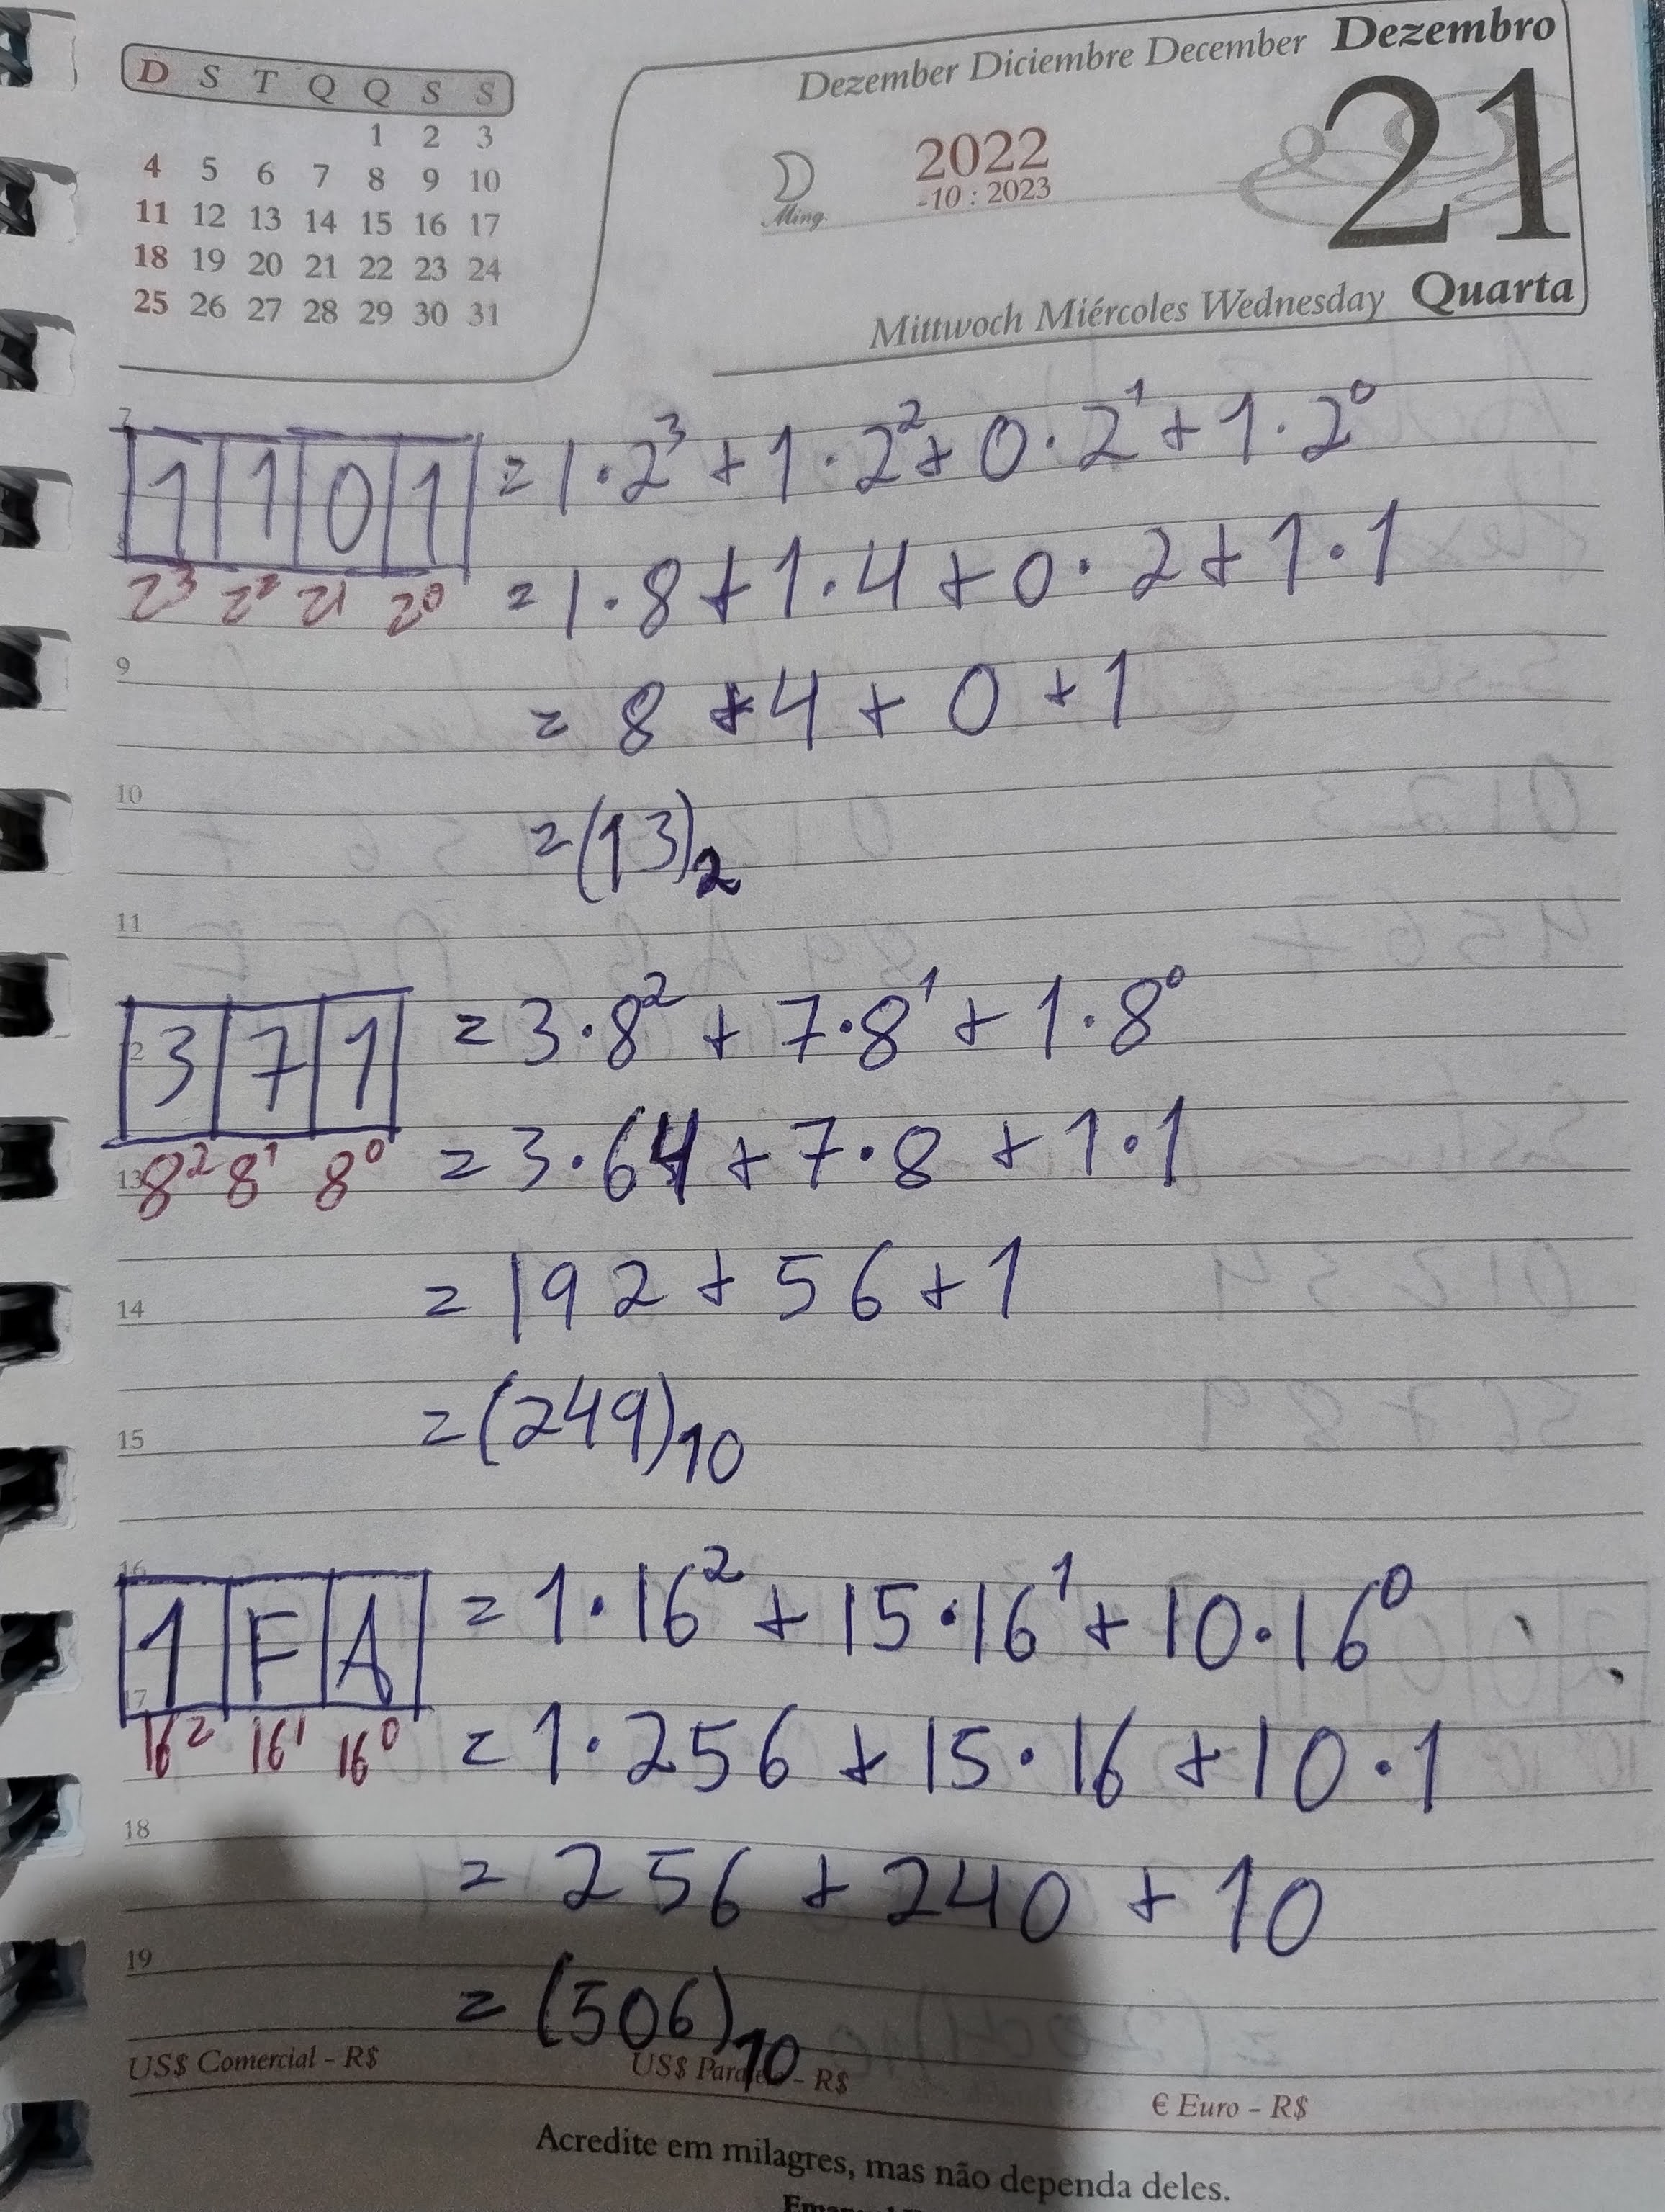 D S T Q Q S S
1 2 3
4 5 6 7 8 9 10
11 12 13 14 15 16 17
18 19 20 21 22 23 24
25 26 27 28 29 30 31
Dezember Diciembre December Dezembro
21
2022
-10 : 2023
Ming.
Mittwoch Miércoles Wednesday Quarta
7
1 1 0 1 = 1·2³ + 1·2² + 0·2¹ + 1·2⁰
8
2³ 2² 2¹ 2⁰ = 1·8 + 1·4 + 0·2 + 1·1
9
= 8 + 4 + 0 + 1
10
= (13)₂
11
3 7 1 = 3·8² + 7·8¹ + 1·8⁰
13
8² 8¹ 8⁰ = 3·64 + 7·8 + 1·1
14
= 192 + 56 + 1
15
= (249)₁₀
16
1 F A = 1·16² + 15·16¹ + 10·16⁰
17
16² 16¹ 16⁰ = 1·256 + 15·16 + 10·1
18
= 256 + 240 + 10
19
= (506)₁₀
US$ Comercial - R$
US$ - R$
€ Euro - R$
Acredite em milagres, mas não dependa deles.